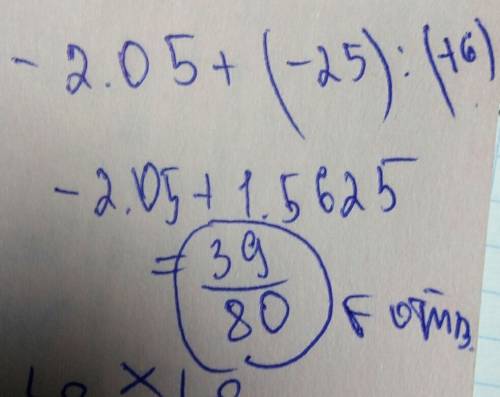 - 2.05 + (-25) : (16)
- 2.05 + 1.5625
= 39
80